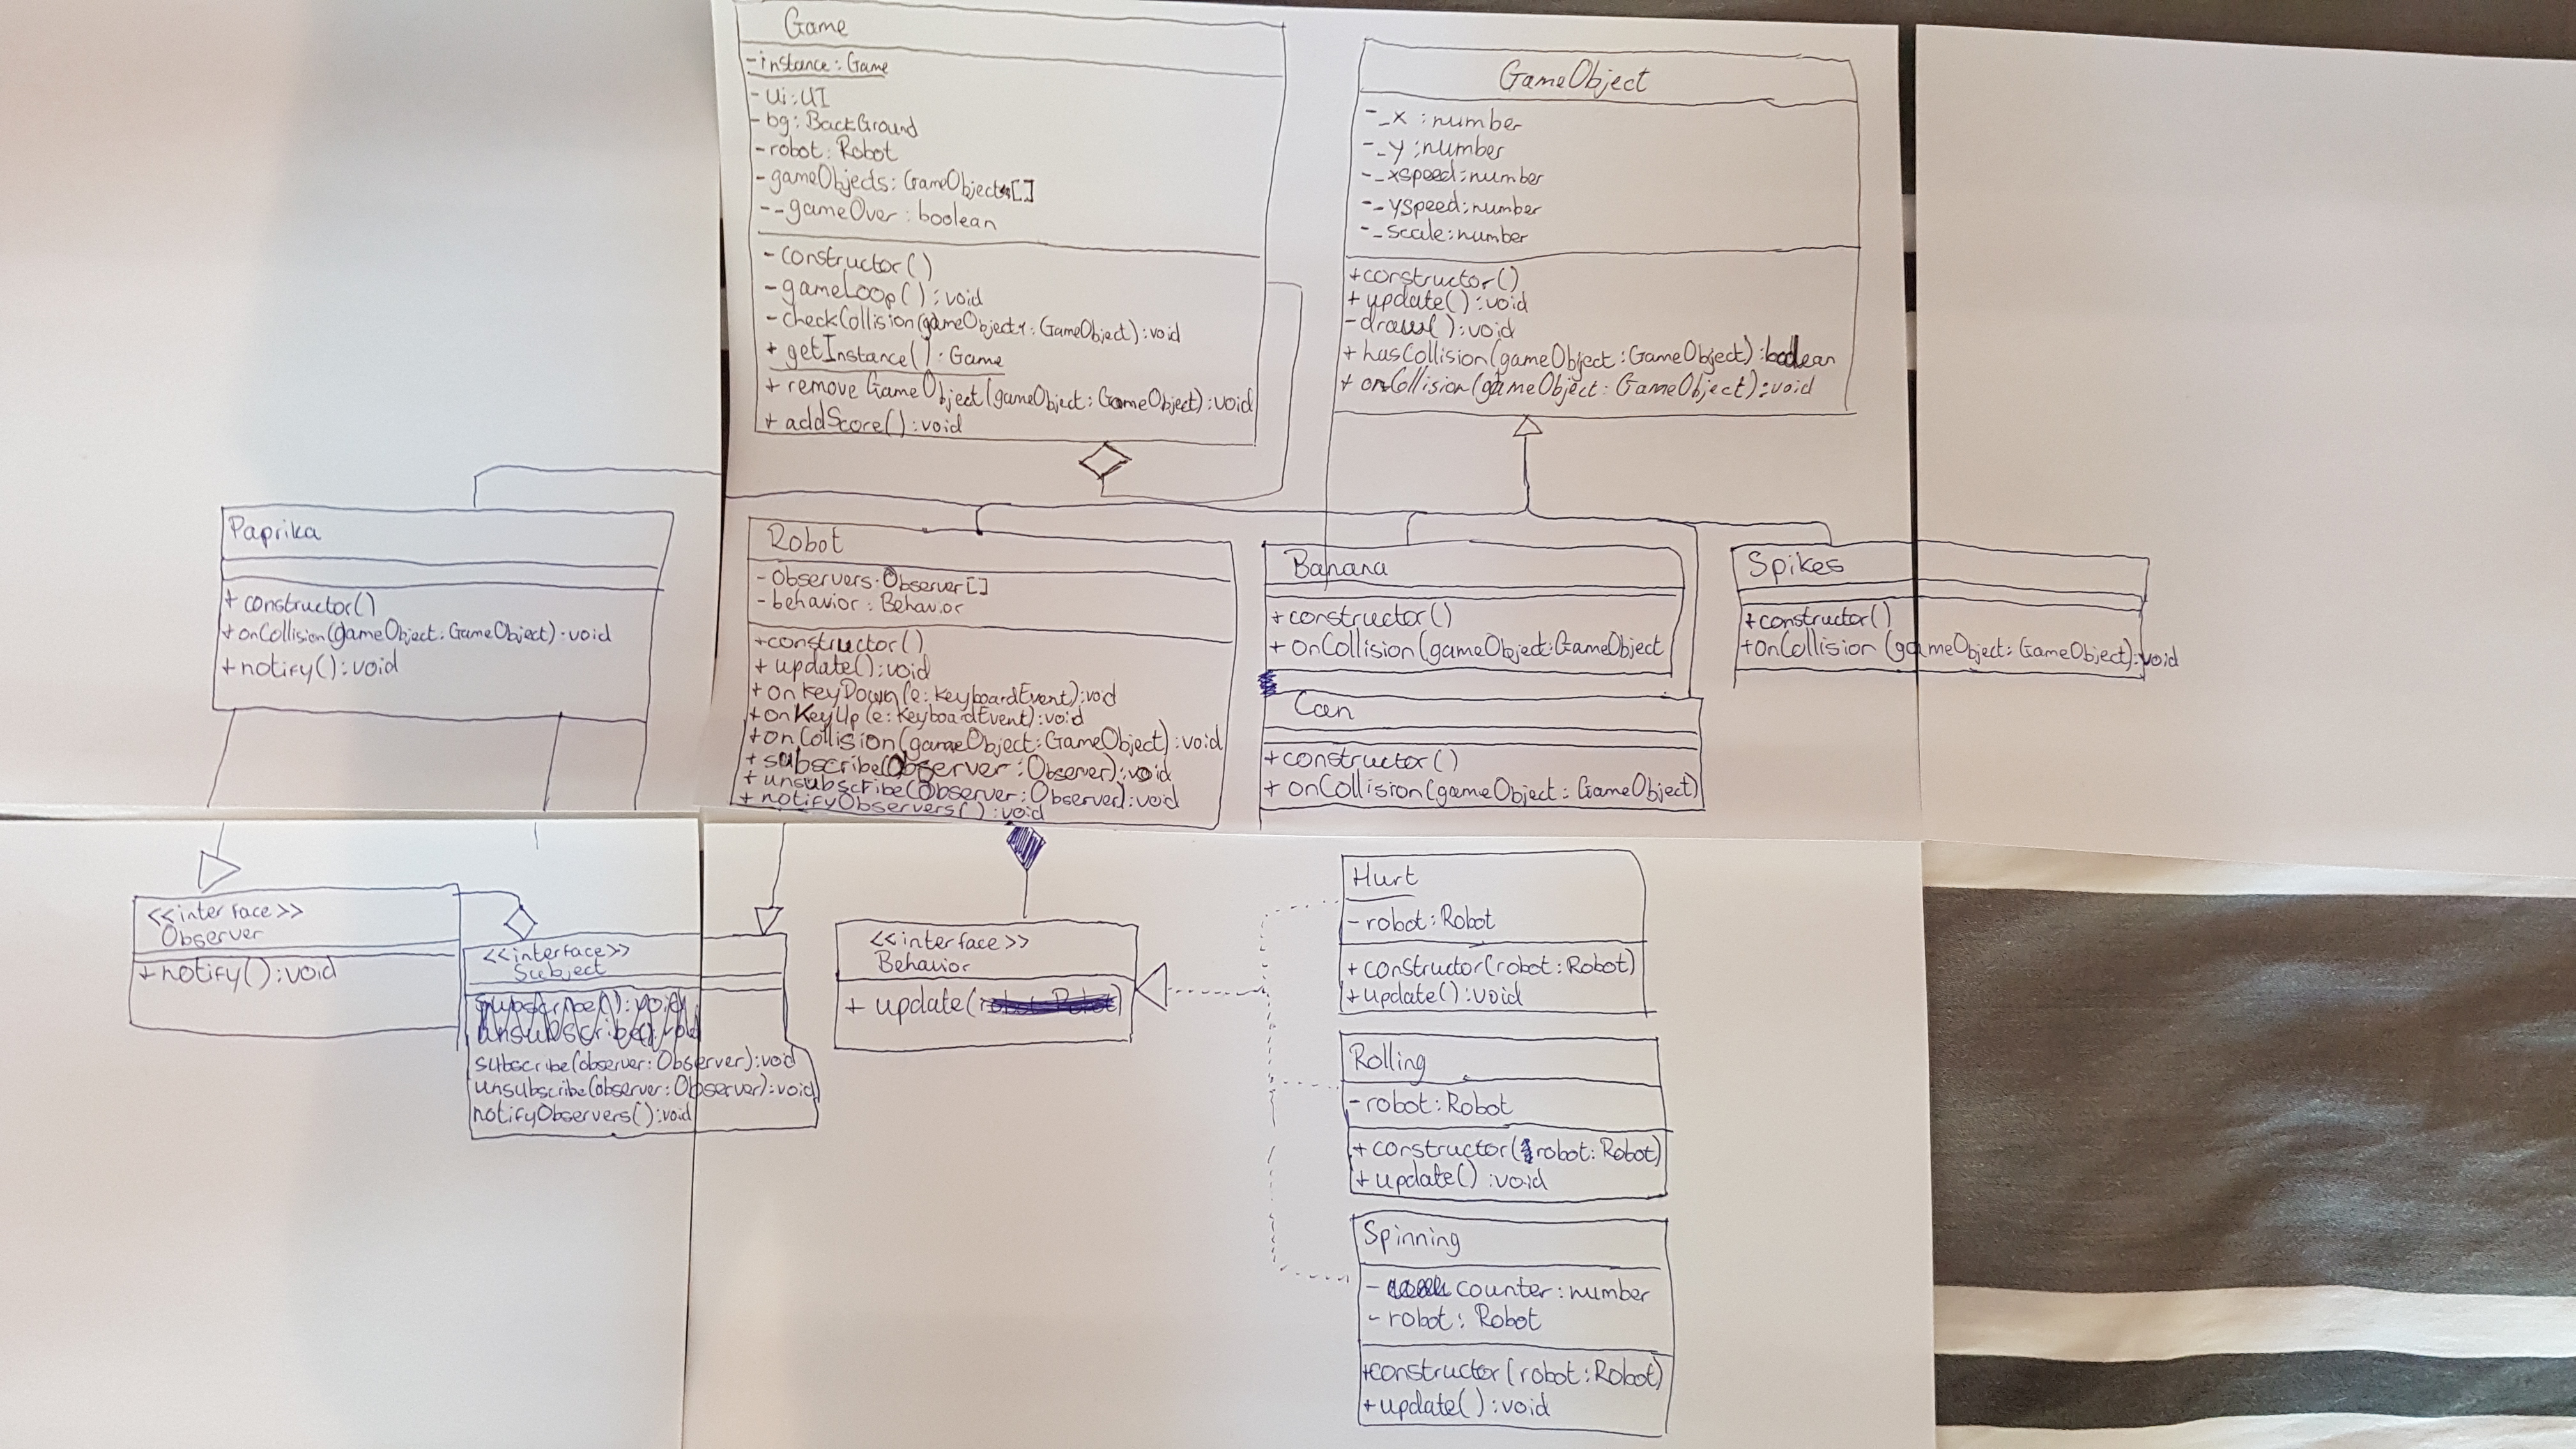 Game
-instance: Game
- Ui: UI
- bg: BackGround
- robot: Robot
- gameObjects: GameObject[]
- _gameOver: boolean
- constructor()
- gameLoop(): void
- checkCollision(gameObject: GameObject): void
+ getInstance(): Game
+ removeGameObject(gameObject: GameObject): void
+ addScore(): void
GameObject
- _x: number
- _y: number
- _xspeed: number
- _yspeed: number
- _scale: number
+constructor()
+ update(): void
- draw(): void
+ hasCollision(gameObject: GameObject): boolean
+ onCollision(gameObject: GameObject): void
Paprika
+ constructor()
+ onCollision(gameObject: GameObject): void
+ notify(): void
Robot
- Observers: Observer[]
- behavior: Behavior
+constructor()
+ update(): void
+ onkeyDown(e: KeyboardEvent): void
+ onKeyUp(e: KeyboardEvent): void
+ onCollision(gameObject: GameObject): void
+ subscribe(Observer: Observer): void
+ unsubscribe(Observer: Observer): void
+ notifyObservers(): void
Banana
+constructor()
+ onCollision(gameObject: GameObject
Can
+constructor()
+ onCollision(gameObject: GameObject)
Spikes
+constructor()
+onCollision (gameObject: GameObject): void
<<interface>>
Observer
+notify(): void
<<interface>>
Subject
subscribe(): void
unsubscribe(): void
subscribe(observer: Observer): void
unsubscribe(observer: Observer): void
notifyObservers(): void
<<interface>>
Behavior
+ update(robot: Robot)
Hurt
- robot: Robot
+ constructor(robot: Robot)
+ update(): void
Rolling
- robot: Robot
+ constructor(robot: Robot)
+ update(): void
Spinning
- counter: number
- robot: Robot
+constructor(robot: Robot)
+ update(): void